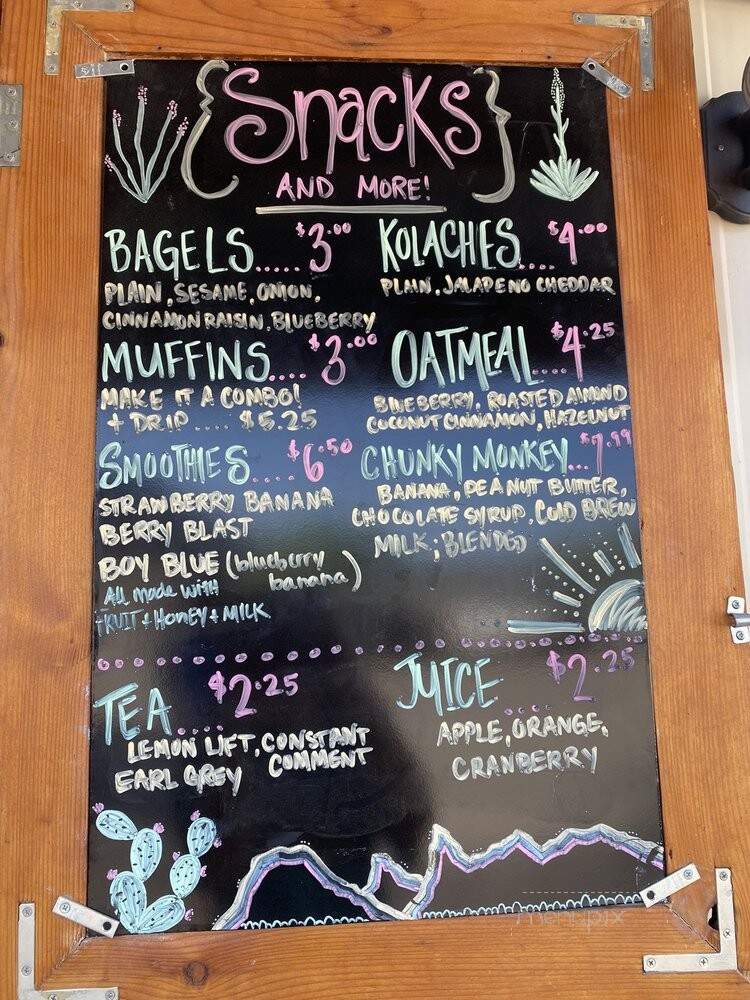 {Snacks}
AND MORE!
BAGELS..... $3.00
PLAIN, SESAME, ONION,
CINNAMON RAISIN, BLUEBERRY
KOLACHES.... $4.00
PLAIN, JALAPENO CHEDDAR
MUFFINS.... $3.00
MAKE IT A COMBO!
+ DRIP .... $5.25
OATMEAL.... $4.25
BLUEBERRY, ROASTED ALMOND
COCONUT CINNAMON, HAZELNUT
SMOOTHIES.... $6.50
STRAWBERRY BANANA
BERRY BLAST
BOY BLUE (blueberry
banana)
All made with
FRUIT + HONEY + MILK
CHUNKY MONKEY... $7.99
BANANA, PEANUT BUTTER,
CHOCOLATE SYRUP, COLD BREW
MILK; BLENDED
TEA.... $2.25
LEMON LIFT, CONSTANT
COMMENT
EARL GREY
JUICE.... $2.25
APPLE, ORANGE,
CRANBERRY
menupix